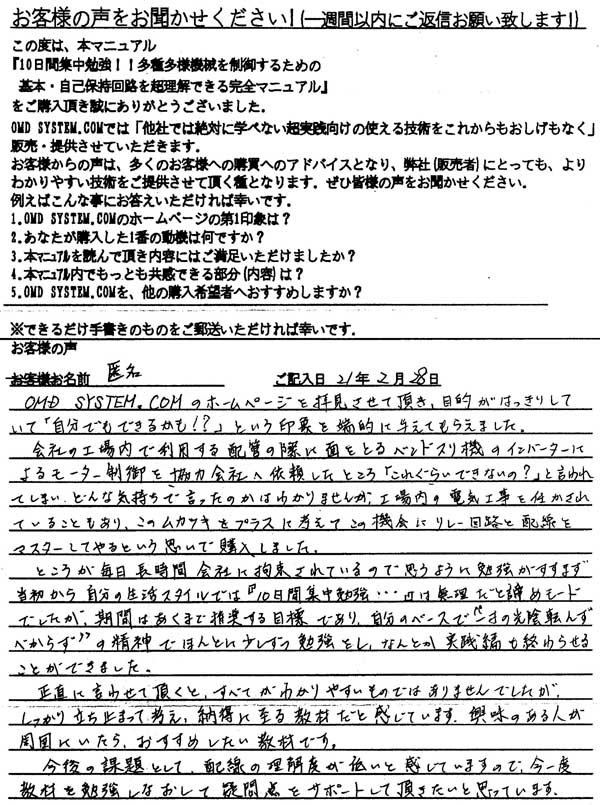 お客様の声をお聞かせください！(一週間以内にご返信お願い致します!)
この度は、本マニュアル
『10日間集中勉強！！多種多様機械を制御するための
基本・自己保持回路を超理解できる完全マニュアル』
をご購入頂き誠にありがとうございました。
OMD SYSTEM.COMでは「他社では絶対に学べない超実践向けの使える技術をこれからもおしげもなく」
販売・提供させていただきます。
お客様からの声は、多くのお客様への購買へのアドバイスとなり、弊社(販売者)にとっても、より
わかりやすい技術をご提供させて頂く種となります。ぜひ皆様の声をお聞かせください。
例えばこんな事にお答えいただければ幸いです。
1.OMD SYSTEM.COMのホームページの第1印象は？
2.あなたが購入した1番の動機は何ですか？
3.本マニュアルを読んで頂き内容にはご満足いただけましたか？
4.本マニュアル内でもっとも共感できる部分(内容)は？
5.OMD SYSTEM.COMを、他の購入希望者へおすすめしますか？
※できるだけ手書きのものをご郵送いただければ幸いです。
お客様の声
お客様お名前 匿名 ご記入日 21年2月28日
OMD SYSTEM.COMのホームページを拝見させて頂き、目的がはっきりして
いて「自分でもできるかも!?」という印象を端的に与えてもらえました。
会社の工場内で利用する配管の際に面をとるベンドスリ機のインバーターに
よるモーター制御を協力会社へ依頼したところ「これぐらいできないの？」と言われ
てしまい、どんな気持ちで言ったのかはわかりませんが、工場内の電気工事を任かされ
ていることもあり、このムカツキをプラスに考えてこの機会にリレー回路と配線を
マスターしてやるという思いで購入しました。
ところが毎日長時間会社に拘束されているので思うように勉強がすすまず
当初から自分の生活スタイルでは『10日間集中勉強…』は無理だと諦めモード
でしたが、期間はあくまで推奨する目標であり、自分のペースで“一寸の光陰転んず
べからず”の精神でほんとに少しずつ勉強をし、なんとか実践編も終わらせる
ことができました。
正直に言わせて頂くと、すべてがわかりやすいものではありませんでしたが、
しっかり立ち止まって考え、納得に至る教材だと感じています。興味のある人が
周囲にいたら、おすすめしたい教材です。
今後の課題として、配線の理解度が低いと感じていますので、今一度
教材を勉強しなおして疑問点をサポートして頂きたいと思っています。